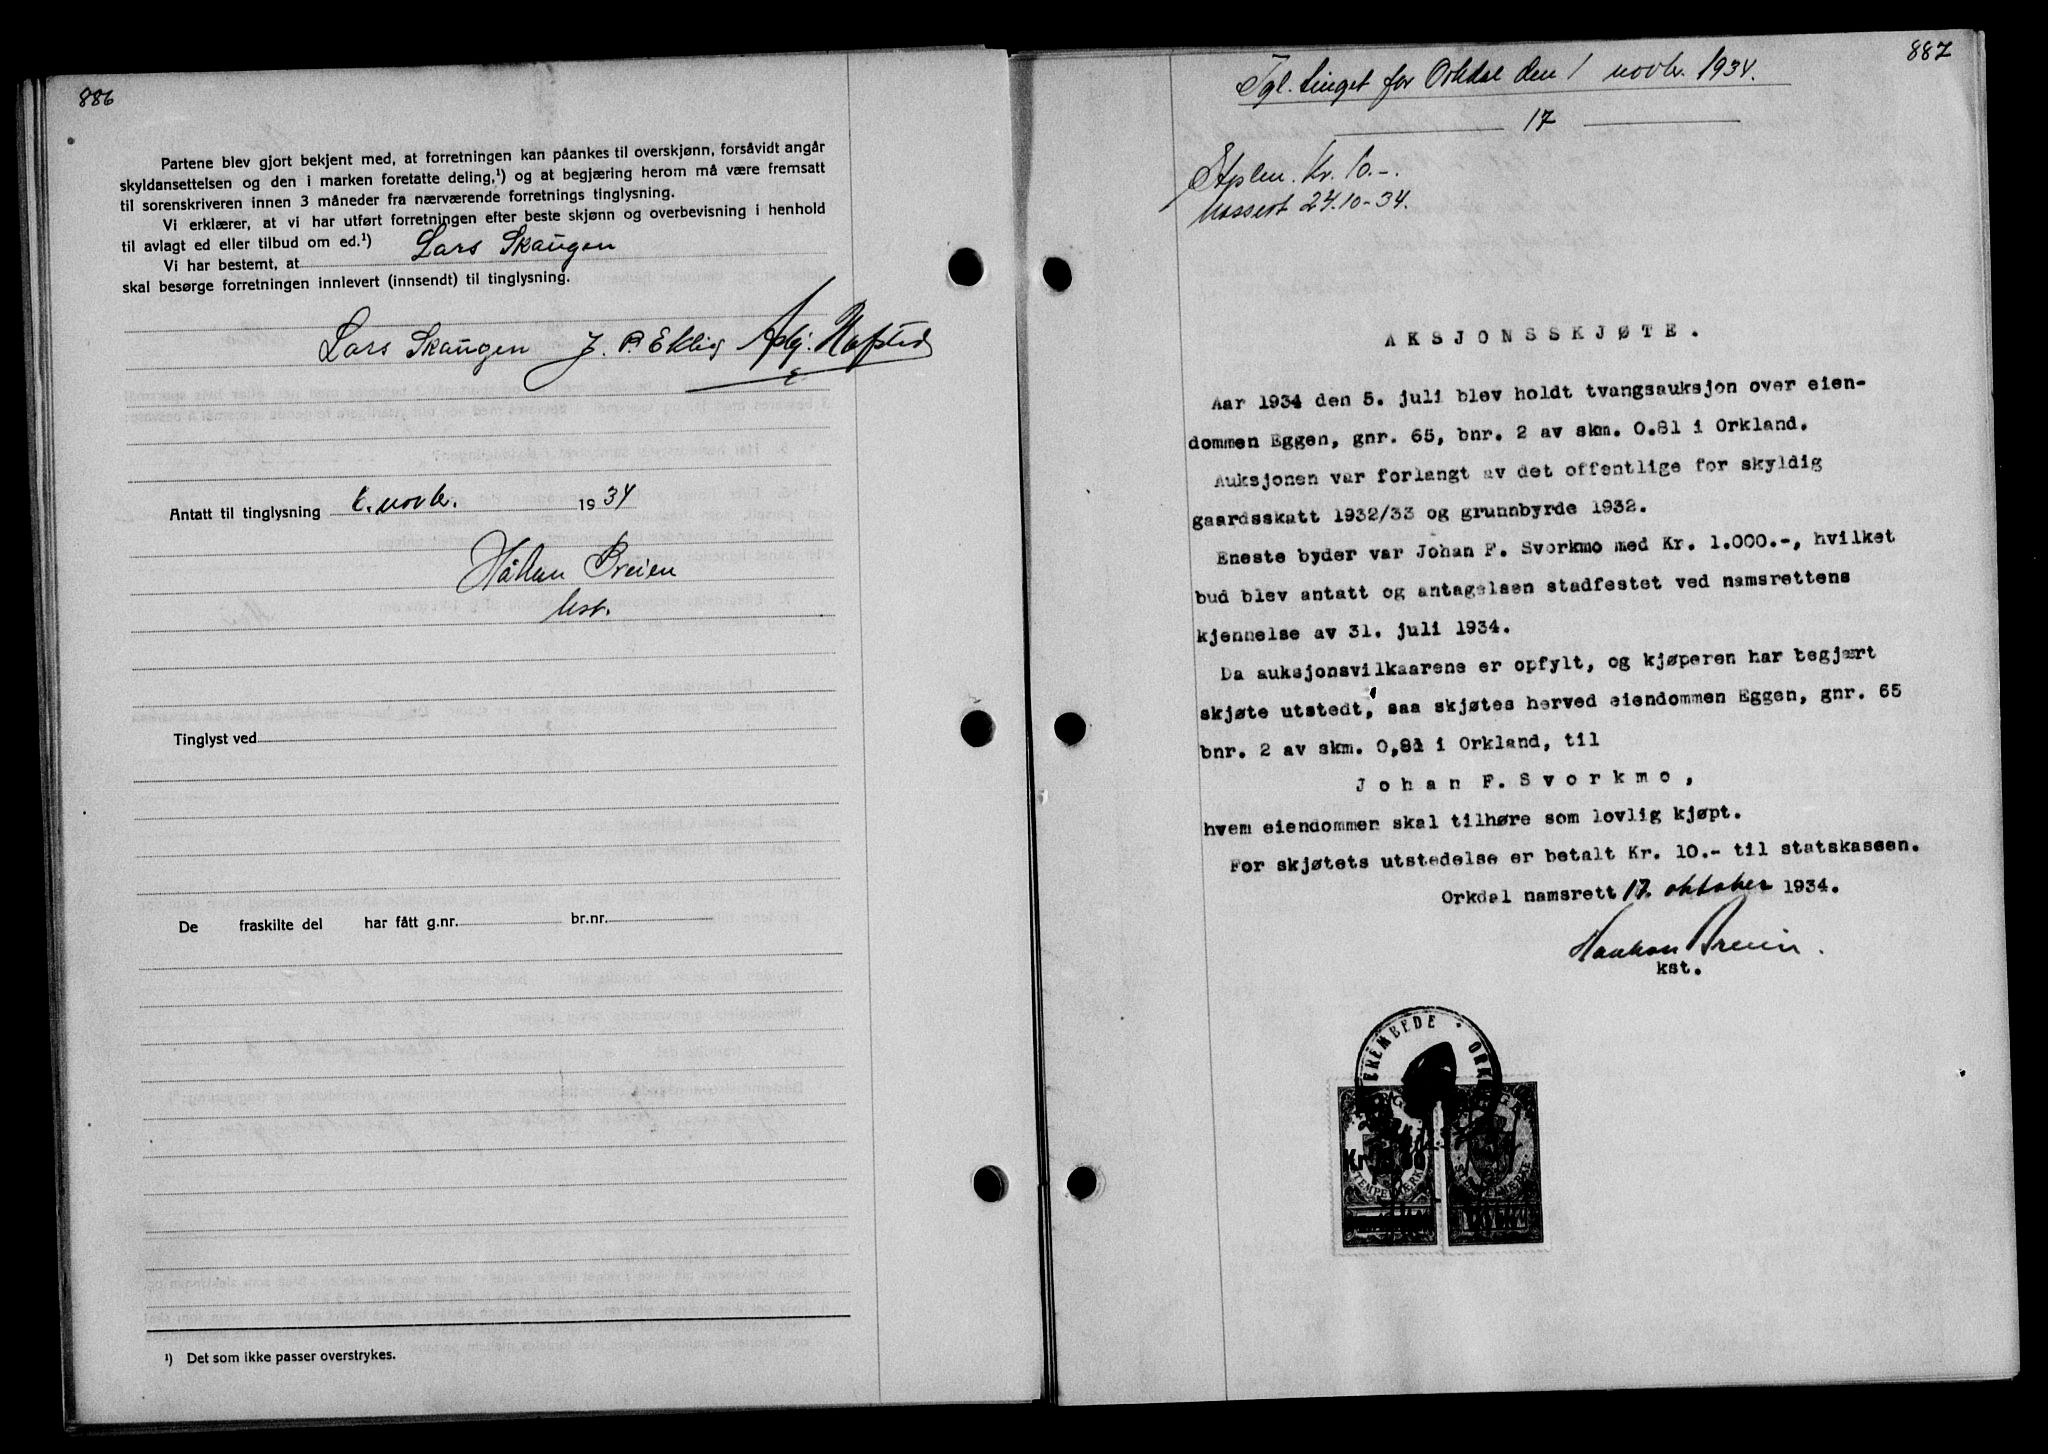 886
Partene blev gjort bekjent med, at forretningen kan påankes til overskjønn, forsåvidt angår
skyldansettelsen og den i marken foretatte deling,¹) og at begjæring herom må være fremsatt
til sorenskriveren innen 3 måneder fra nærværende forretnings tinglysning.
Vi erklærer, at vi har utført forretningen efter beste skjønn og overbevisning i henhold
til avlagt ed eller tilbud om ed.¹)
Vi har bestemt, at Lars Skaugen
skal besørge forretningen innlevert (innsendt) til tinglysning.
Lars Skaugen J. P. Eklig Asbj. Hofstad
Antatt til tinglysning 1. novbr. 1934
Håkon Breien
kst.
Tinglyst ved
De fraskilte del har fått g.nr. br.nr.
¹) Det som ikke passer overstrykes.
887
Tgl. tinget for Orkdal den 1 novbr. 1934.
17
Stplm. Kr. 10.-.
kassert 24.10-34.
AKSJONSSKJØTE.
Aar 1934 den 5. juli blev holdt tvangsauksjon over eien-
dommen Eggen, gnr. 65, bnr. 2 av skm. 0.81 i Orkland.
Auksjonen var forlangt av det offentlige for skyldig
gaardsskatt 1932/33 og grunnbyrde 1932.
Eneste byder var Johan F. Svorkmo med Kr. 1.000.-, hvilket
bud blev antatt og antagelsen stadfestet ved namsrettens
kjennelse av 31. juli 1934.
Da auksjonsvilkaarene er opfylt, og kjøperen har begjært
skjøte utstedt, saa skjøtes herved eiendommen Eggen, gnr. 65
bnr. 2 av skm. 0,81 i Orkland, til
Johan F. Svorkmo,
hvem eiendommen skal tilhøre som lovlig kjøpt.
For skjøtets utstedelse er betalt Kr. 10.- til statskassen.
Orkdal namsrett 17. oktober 1934.
Haakon Breien.
kst.